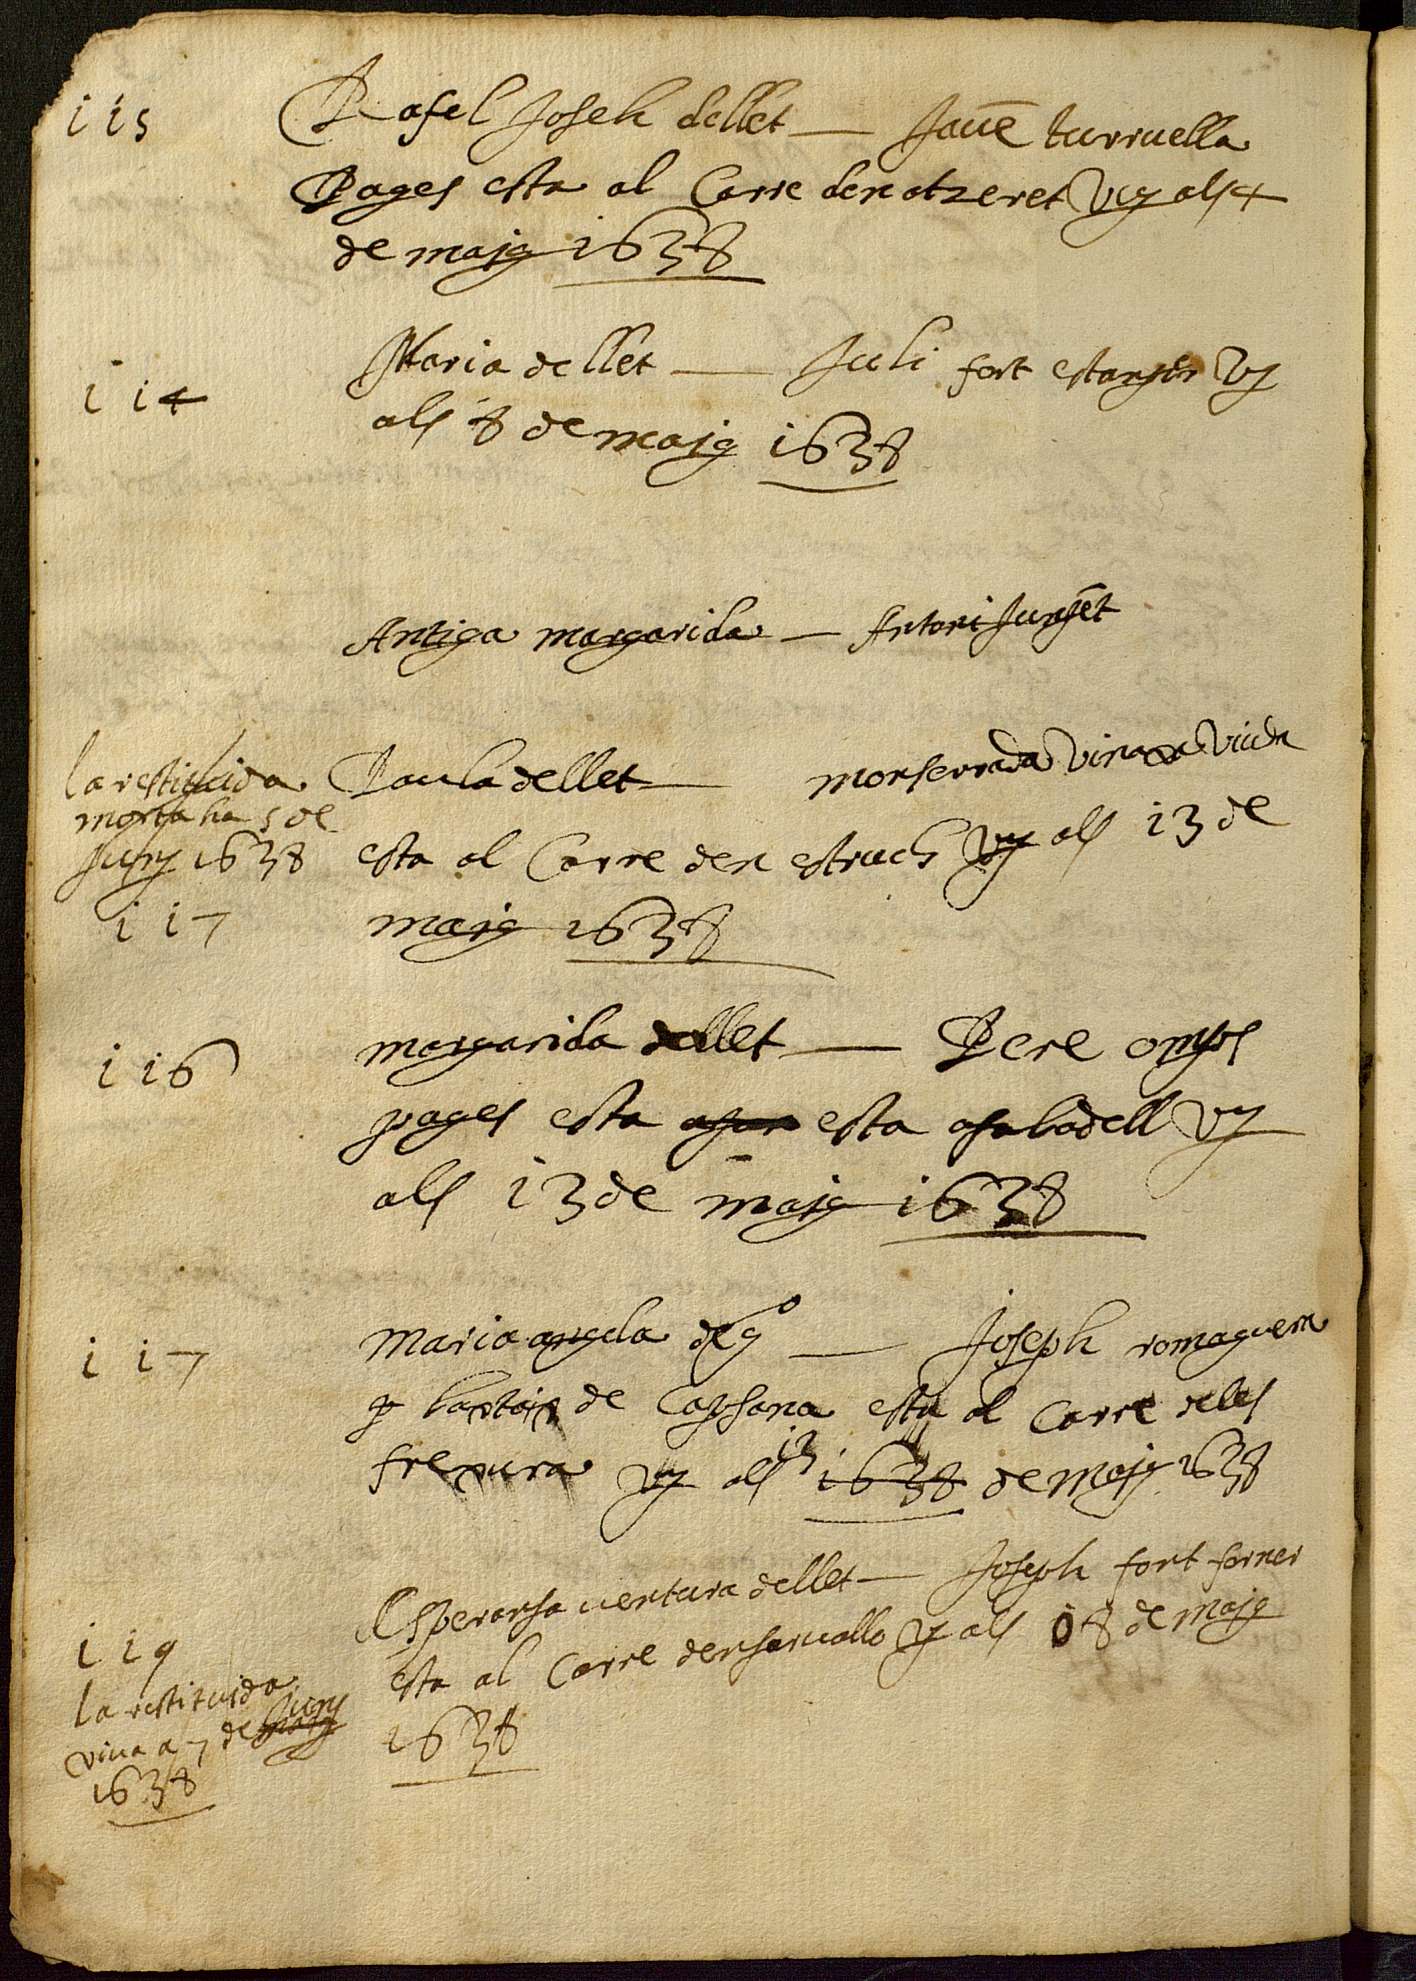 115 Rafel Joseh dellet — Jaūe turruella
Pages esta al Carre den atzeret vy als 4
de maig 1638
114 Maria de llet — Juli fort estanyer vy
als 8 de maig 1638
Antiga margarida — Antoni
la restituida
morta ha 5 de
Juny 1638
117
Paula dellet — monserrada viuda
esta al Carre den estruch vy als 13 de
maig 1638
116 margarida dellet — Pere
pages esta esta asabadell vy
als 13 de maig 1638
117 Maria angela deg⁰ — Joseph romaguera
de Capsana esta al Carre deles
vy als 13 1638 de maig 1638
119
la restituida
viua a 7 de Juny
1638
Esperansa uentura dellet — Joseph fort forner
esta al Carre vy als 8 de maig
1638